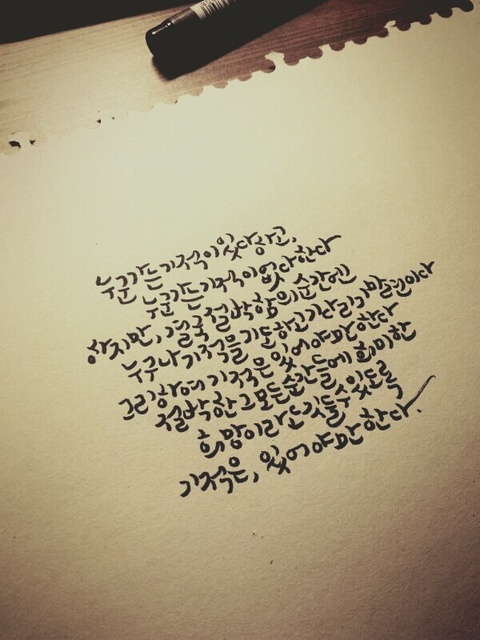 누군가는 기적이 있다 하고,
누군가는 기적이 없다 한다
하지만, 결국 절박함의 순간엔
누구나 기적을 기도하고 기다리기 마련이다
그리하여 기적은 있어야만 한다
절박한 그 모든 순간들에 희미한
희망이라도 깃들 수 있도록
기적은, 있어야만 한다.